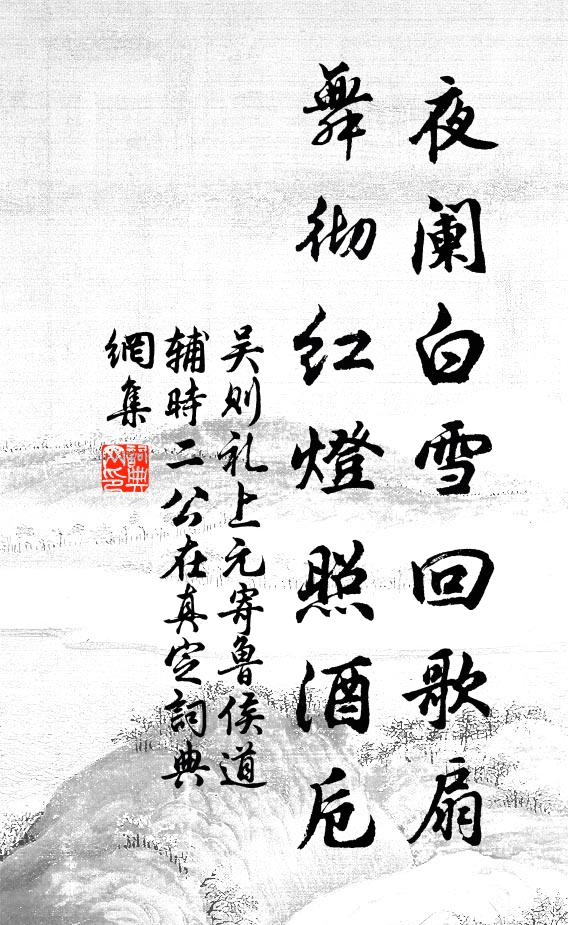 夜阑白雪回歌扇
舞彻红燈照酒卮
吴则礼上元寄鲁侯道
辅時二公在真定詞典
網集
詞典网印